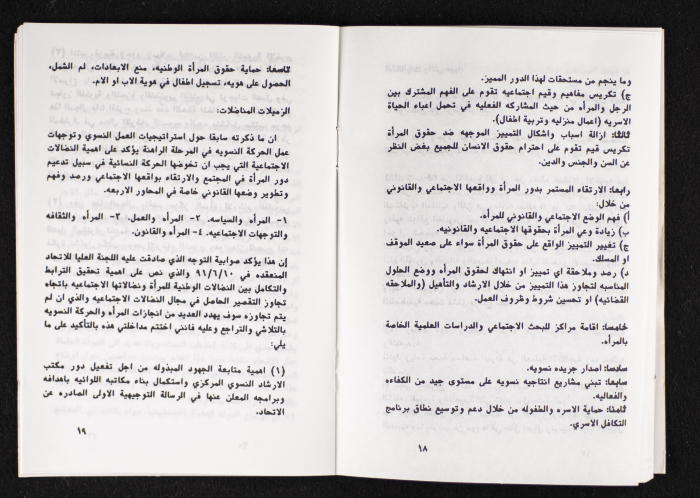 وما ينجم من مستحقات لهذا الدور المميز.
ج) تكريس مفاهيم وقيم اجتماعيه تقوم على الفهم المشترك بين
الرجل والمرأه من حيث المشاركه الفعليه في تحمل اعباء الحياة
الاسريه (اعمال منزليه وتربية اطفال).
ثالثا: ازالة اسباب واشكال التمييز الموجهه ضد حقوق المرأة
تكريس قيم تقوم على احترام حقوق الانسان للجميع بغض النظر
عن السن والجنس والدين.
رابعا: الارتقاء المستمر بدور المرأة وواقعها الاجتماعي والقانوني
من خلال:
أ) فهم الوضع الاجتماعي والقانوني للمرأه.
ب) زيادة وعي المرأة بحقوقها الاجتماعيه والقانونيه.
ج) تغيير التمييز الواقع على حقوق المرأة سواء على صعيد الموقف
او المسلك.
د) رصد وملاحقة اي تمييز او انتهاك لحقوق المرأه ووضع الحلول
المناسبه لتجاوز هذا التمييز من خلال الارشاد والتأهيل (والملاحقه
القضائيه) او تحسين شروط وظروف العمل.
خامسا: اقامة مراكز للبحث الاجتماعي والدراسات العلمية الخاصة
بالمرأه.
سادسا: اصدار جريده نسويه.
سابعا: تبني مشاريع انتاجيه نسويه على مستوى جيد من الكفاءه
والفعاليه.
ثامنا: حماية الاسره والطفوله من خلال دعم وتوسيع نطاق برنامج
التكافل الاسري.
١٨
تاسعا: حماية حقوق المرأة الوطنيه، منع الابعادات، لم الشمل،
الحصول على هويه، تسجيل اطفال في هوية الاب او الام.
الزميلات المناضلات:
ان ما ذكرته سابقا حول استراتيجيات العمل النسوي وتوجهات
عمل الحركة النسويه في المرحلة الراهنة يؤكد على اهمية النضالات
الاجتماعية التي يجب ان تخوضها الحركة النسائية في سبيل تدعيم
دور المرأة في المجتمع والارتقاء بواقعها الاجتماعي ورصد وفهم
وتطوير وضعها القانوني خاصة في المحاور الاربعه.
١- المرأه والسياسه. ٢- المرأه والعمل. ٣- المرأه والثقافه
والتوجهات الاجتماعيه. ٤- المرأه والقانون.
إن هذا يؤكد صوابية التوجه الذي صادقت عليه اللجنة العليا للاتحاد
المنعقده في ٩٦/٦/١٠ والذي نص على اهمية تحقيق الترابط
والتكامل بين النضالات الوطنية للمرأة ونضالاتها الاجتماعيه باتجاه
تجاوز التقصير الحاصل في مجال النضالات الاجتماعيه والذي ان لم
يتم تجاوزه سوف يهدد العديد من انجازات المرأة والحركة النسويه
بالتلاشي والتراجع وعليه فانني اختتم مداخلتي هذه بالتأكيد على ما
يلي:
(١) اهمية متابعة الجهود المبذوله من اجل تفعيل دور مكتب
الارشاد النسوي المركزي واستكمال بناء مكاتبه اللوائيه باهدافه
وبرامجه المعلن عنها في الرسالة التوجيهية الاولى الصادره عن
الاتحاد.
١٩